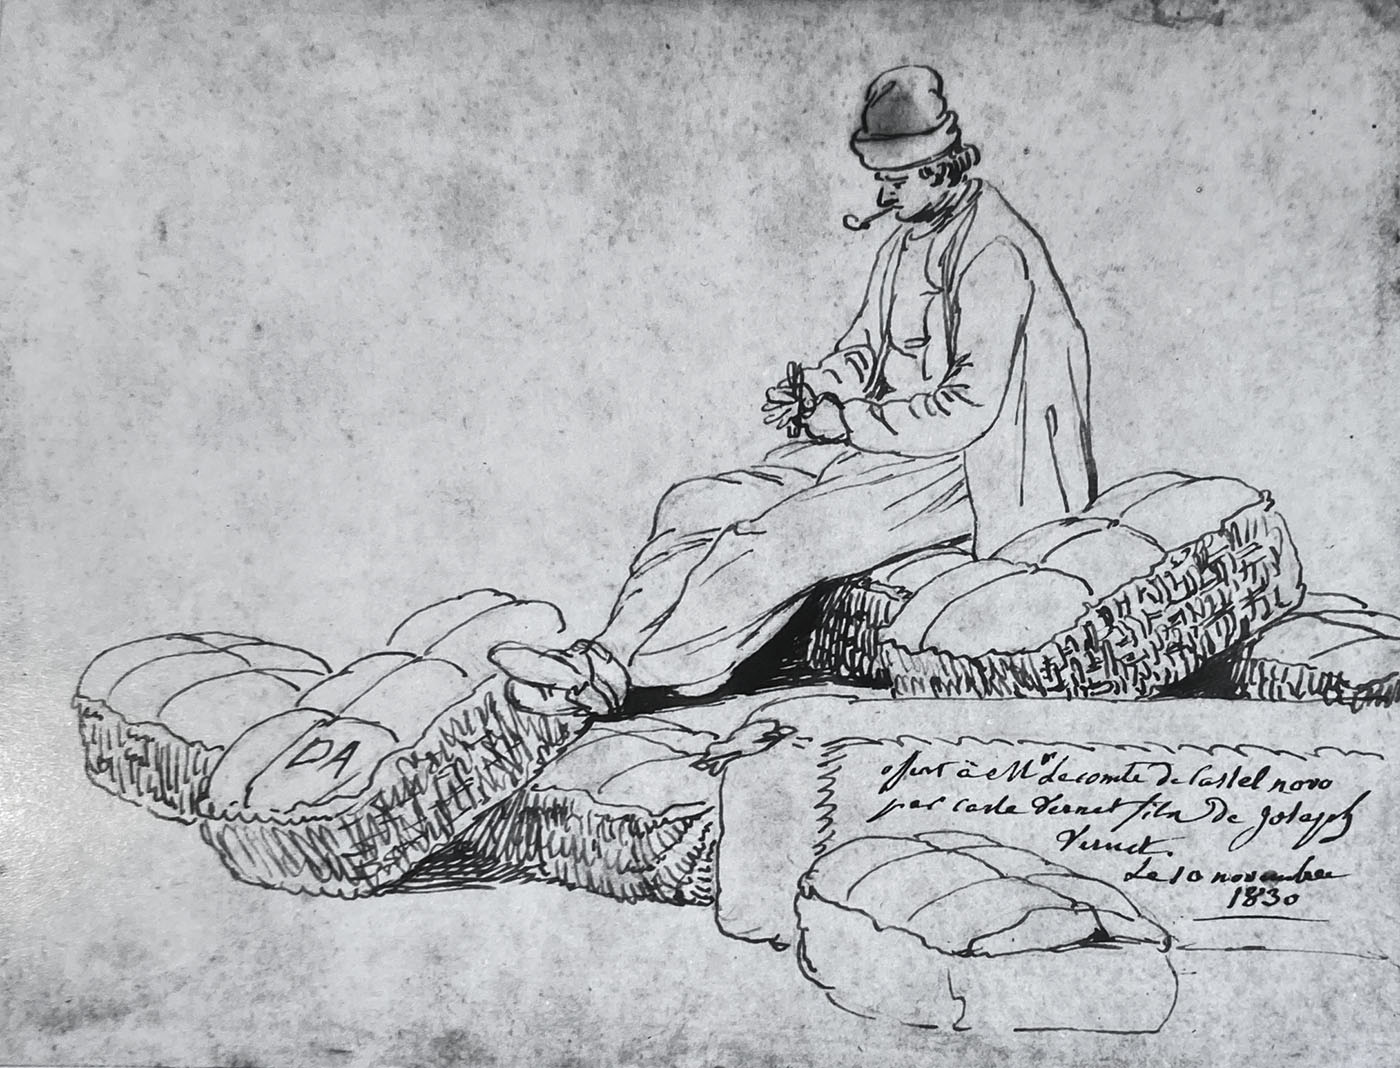 DA
offert à Mr Lecomte de Castel novo
par Carle Vernet fils De Joseph
Vernet.
Le 10 novembre
1830